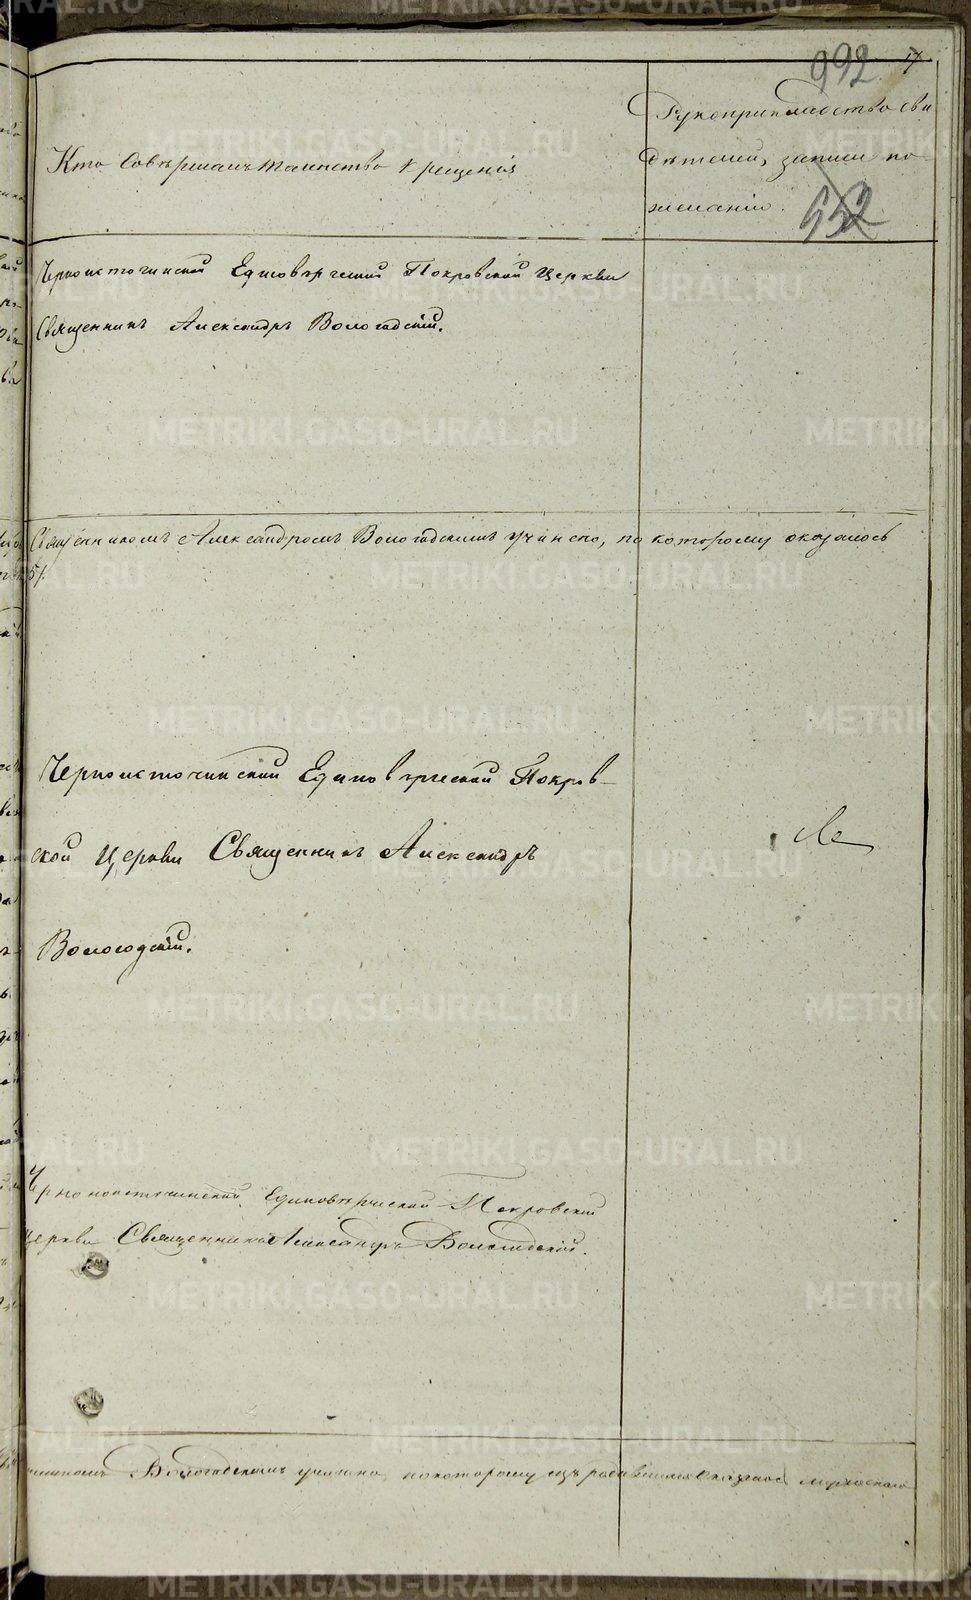 992. 17.
Кто совершалъ таинство крещенія
Рукоприкладство сви
дѣтелей, записи по
желанію.
552
Черноисточинской Единовѣрческой Покровской Церкви
Священникъ Александръ Вологодскій.
Священникомъ Александромъ Вологодскимъ учинено, по которому оказалось
Черноисточинской Единовѣрческой Покров-
ской Церкви Священникъ Александръ
Вологодскій.
Черноисточинской Единовѣрческой Покровской
Церкви Священникъ Александръ Вологодскій.
Вологодскимъ учинено, по которому родившихся мужескаго
METRIKI.GASO-URAL.RU